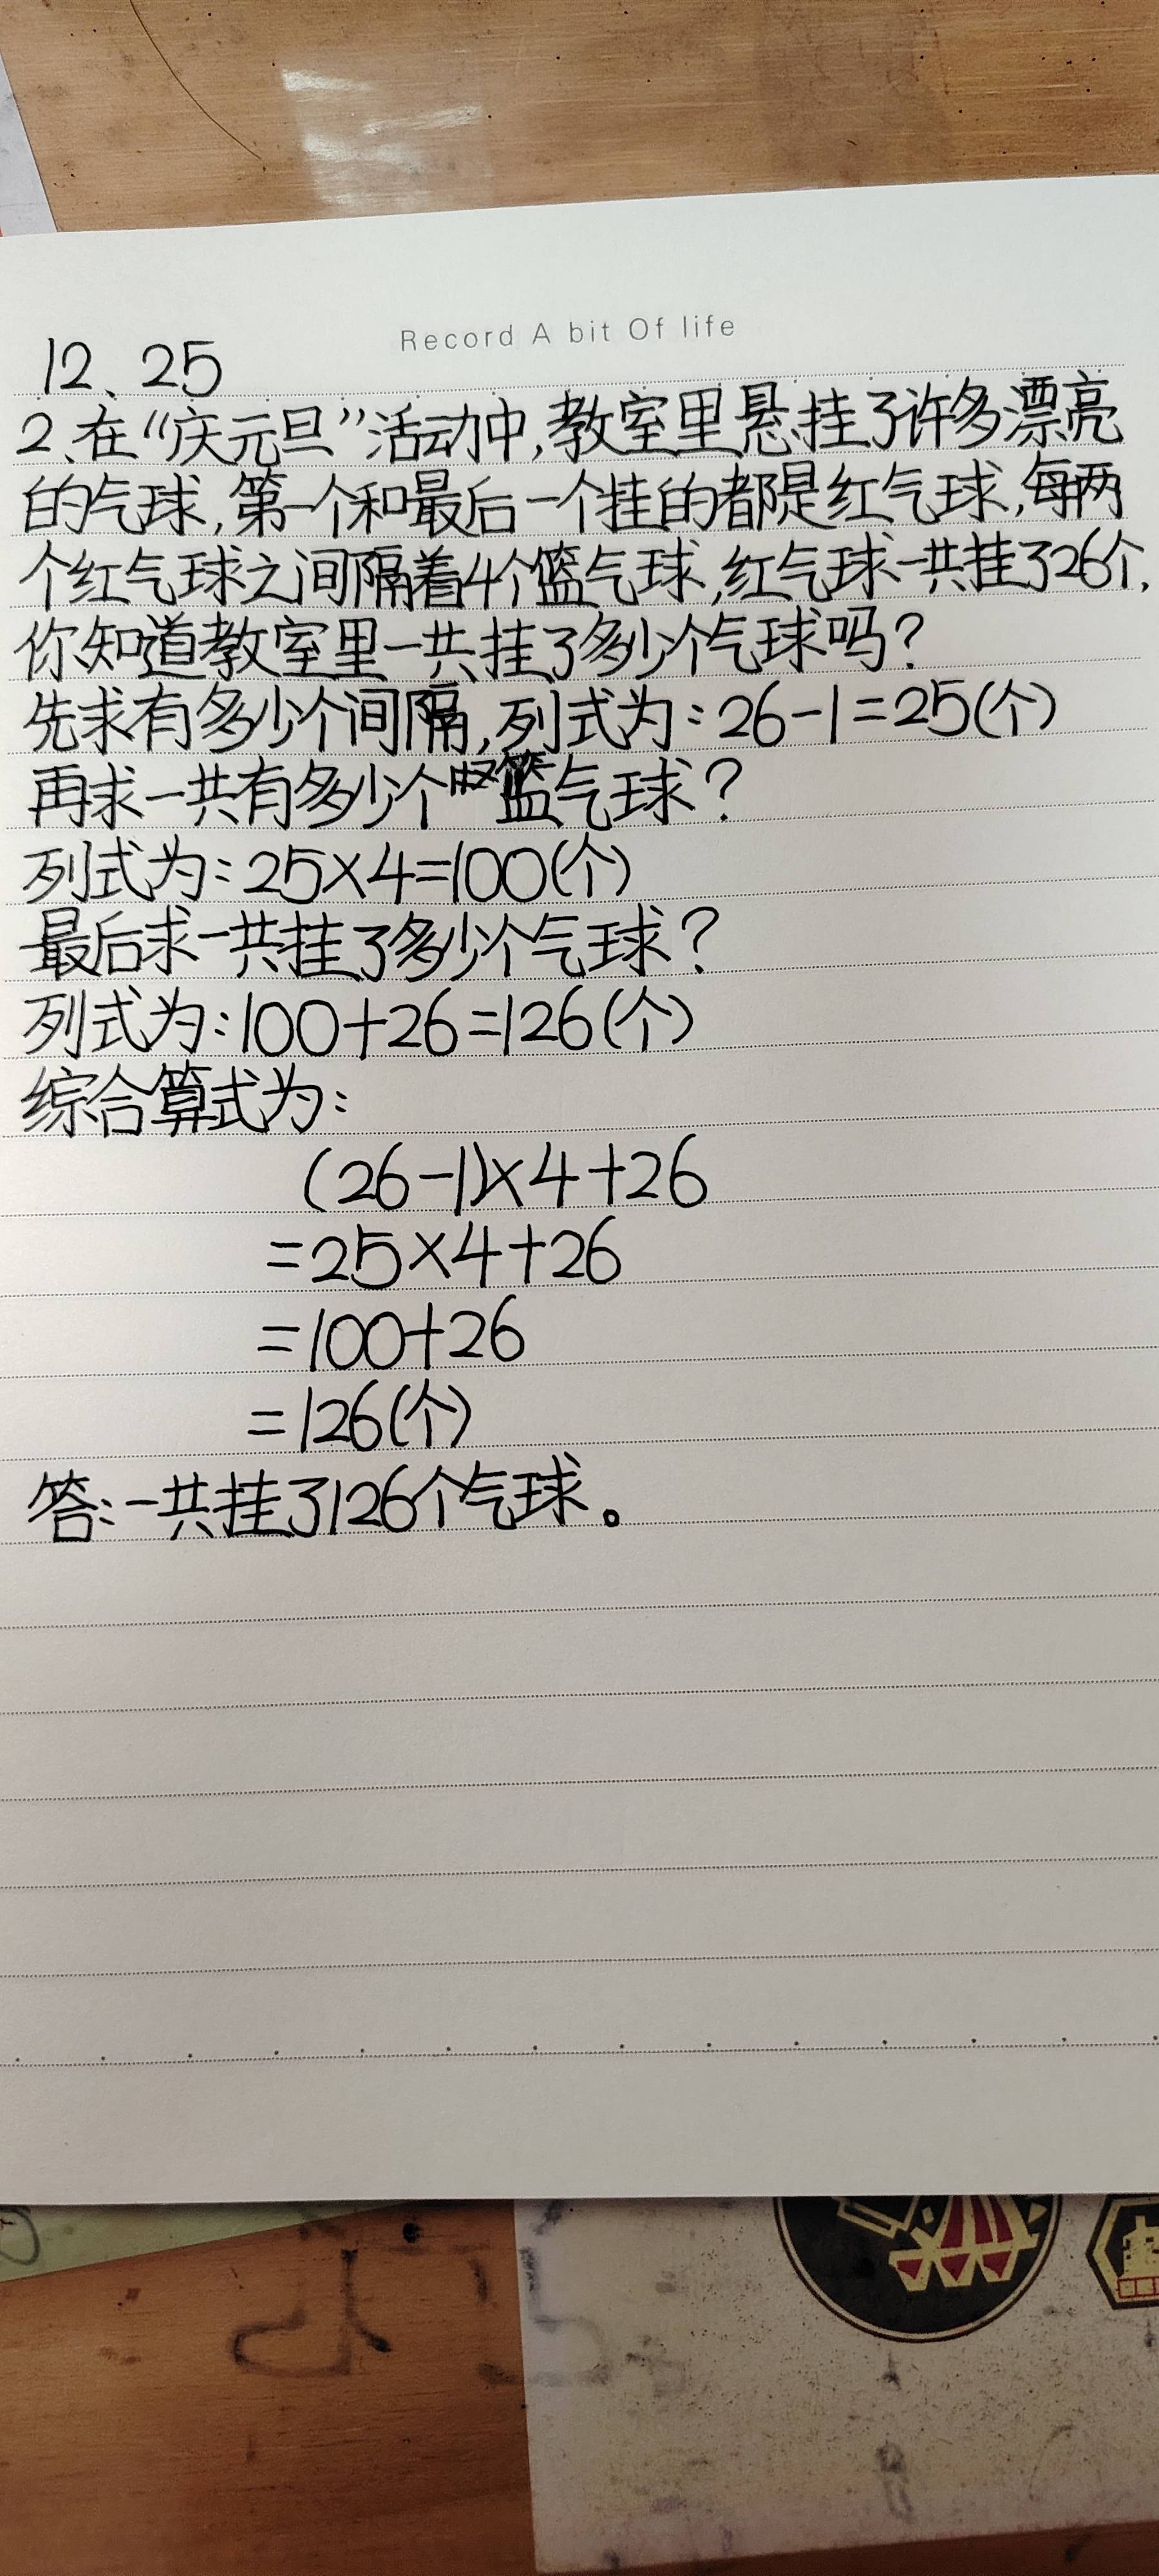 Record A bit Of life
12、25
2、在“庆元旦”活动中,教室里悬挂了许多漂亮
的气球,第一个和最后一个挂的都是红气球,每两
个红气球之间隔着4个篮气球,红气球一共挂了26个,
你知道教室里一共挂了多少个气球吗?
先求有多少个间隔,列式为:26-1=25(个)
再求一共有多少个篮气球?
列式为:25×4=100(个)
最后求一共挂了多少个气球?
列式为:100+26=126(个)
综合算式为:
(26-1)×4+26
=25×4+26
=100+26
=126(个)
答:一共挂了126个气球。